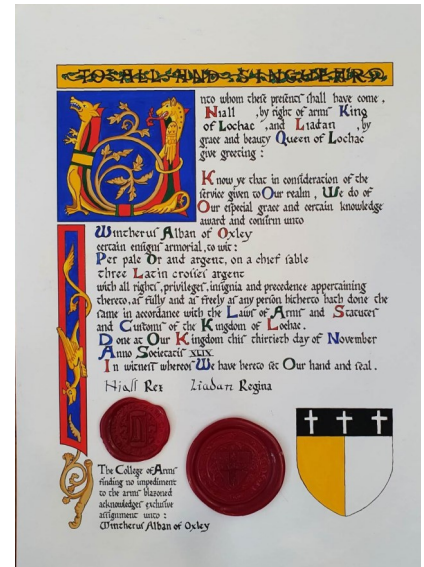 TO ALL AND SINGULAR
Unto whom these presents shall have come,
Niall, by right of arms King
of Lochac, and Liadan, by
grace and beauty Queen of Lochac
give greeting:
Know ye that in consideration of the
service given to Our realm, We do of
Our especial grace and certain knowledge
award and confirm unto
Wintherus Alban of Oxley
certain ensigns armorial, to wit:
Per pale Or and argent, on a chief sable
three Latin crosses argent
with all rights, privileges, insignia and precedence appertaining
thereto, as fully and as freely as any person hitherto hath done the
same in accordance with the Laws of Arms and Statutes
and Customs of the Kingdom of Lochac.
Done at Our Kingdom this thirtieth day of November
Anno Societatis XLIX
In witness whereof We have hereto set Our hand and seal.
Niall Rex Liadan Regina
The College of Arms
finding no impediment
to the arms blazoned
acknowledges exclusive
assignment unto:
Wintherus Alban of Oxley